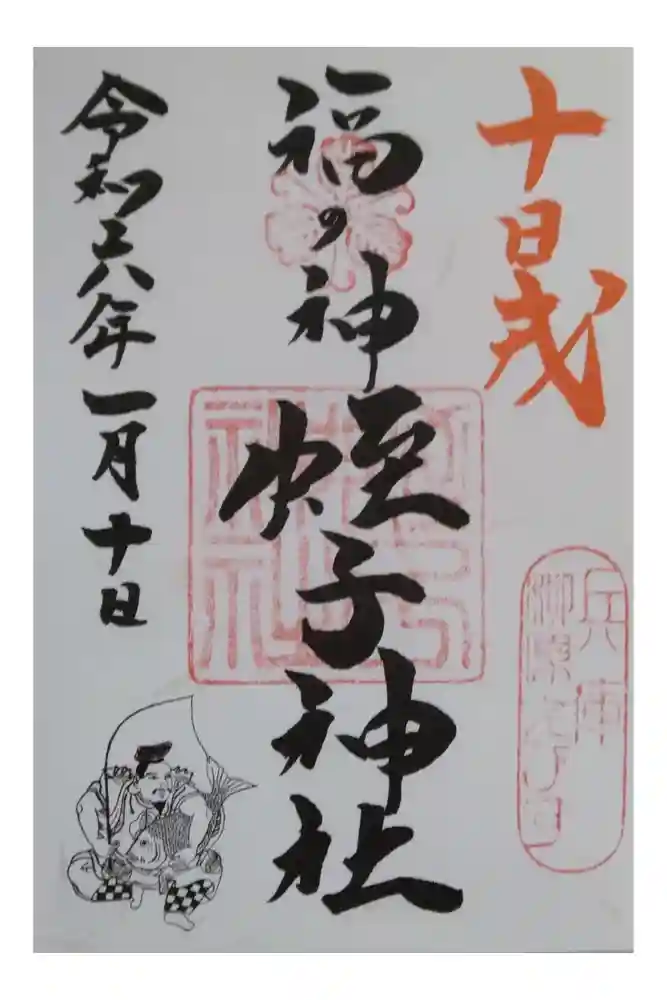 十日戎
兵庫
柳原
福の神蛭子神社
令和六年一月十日